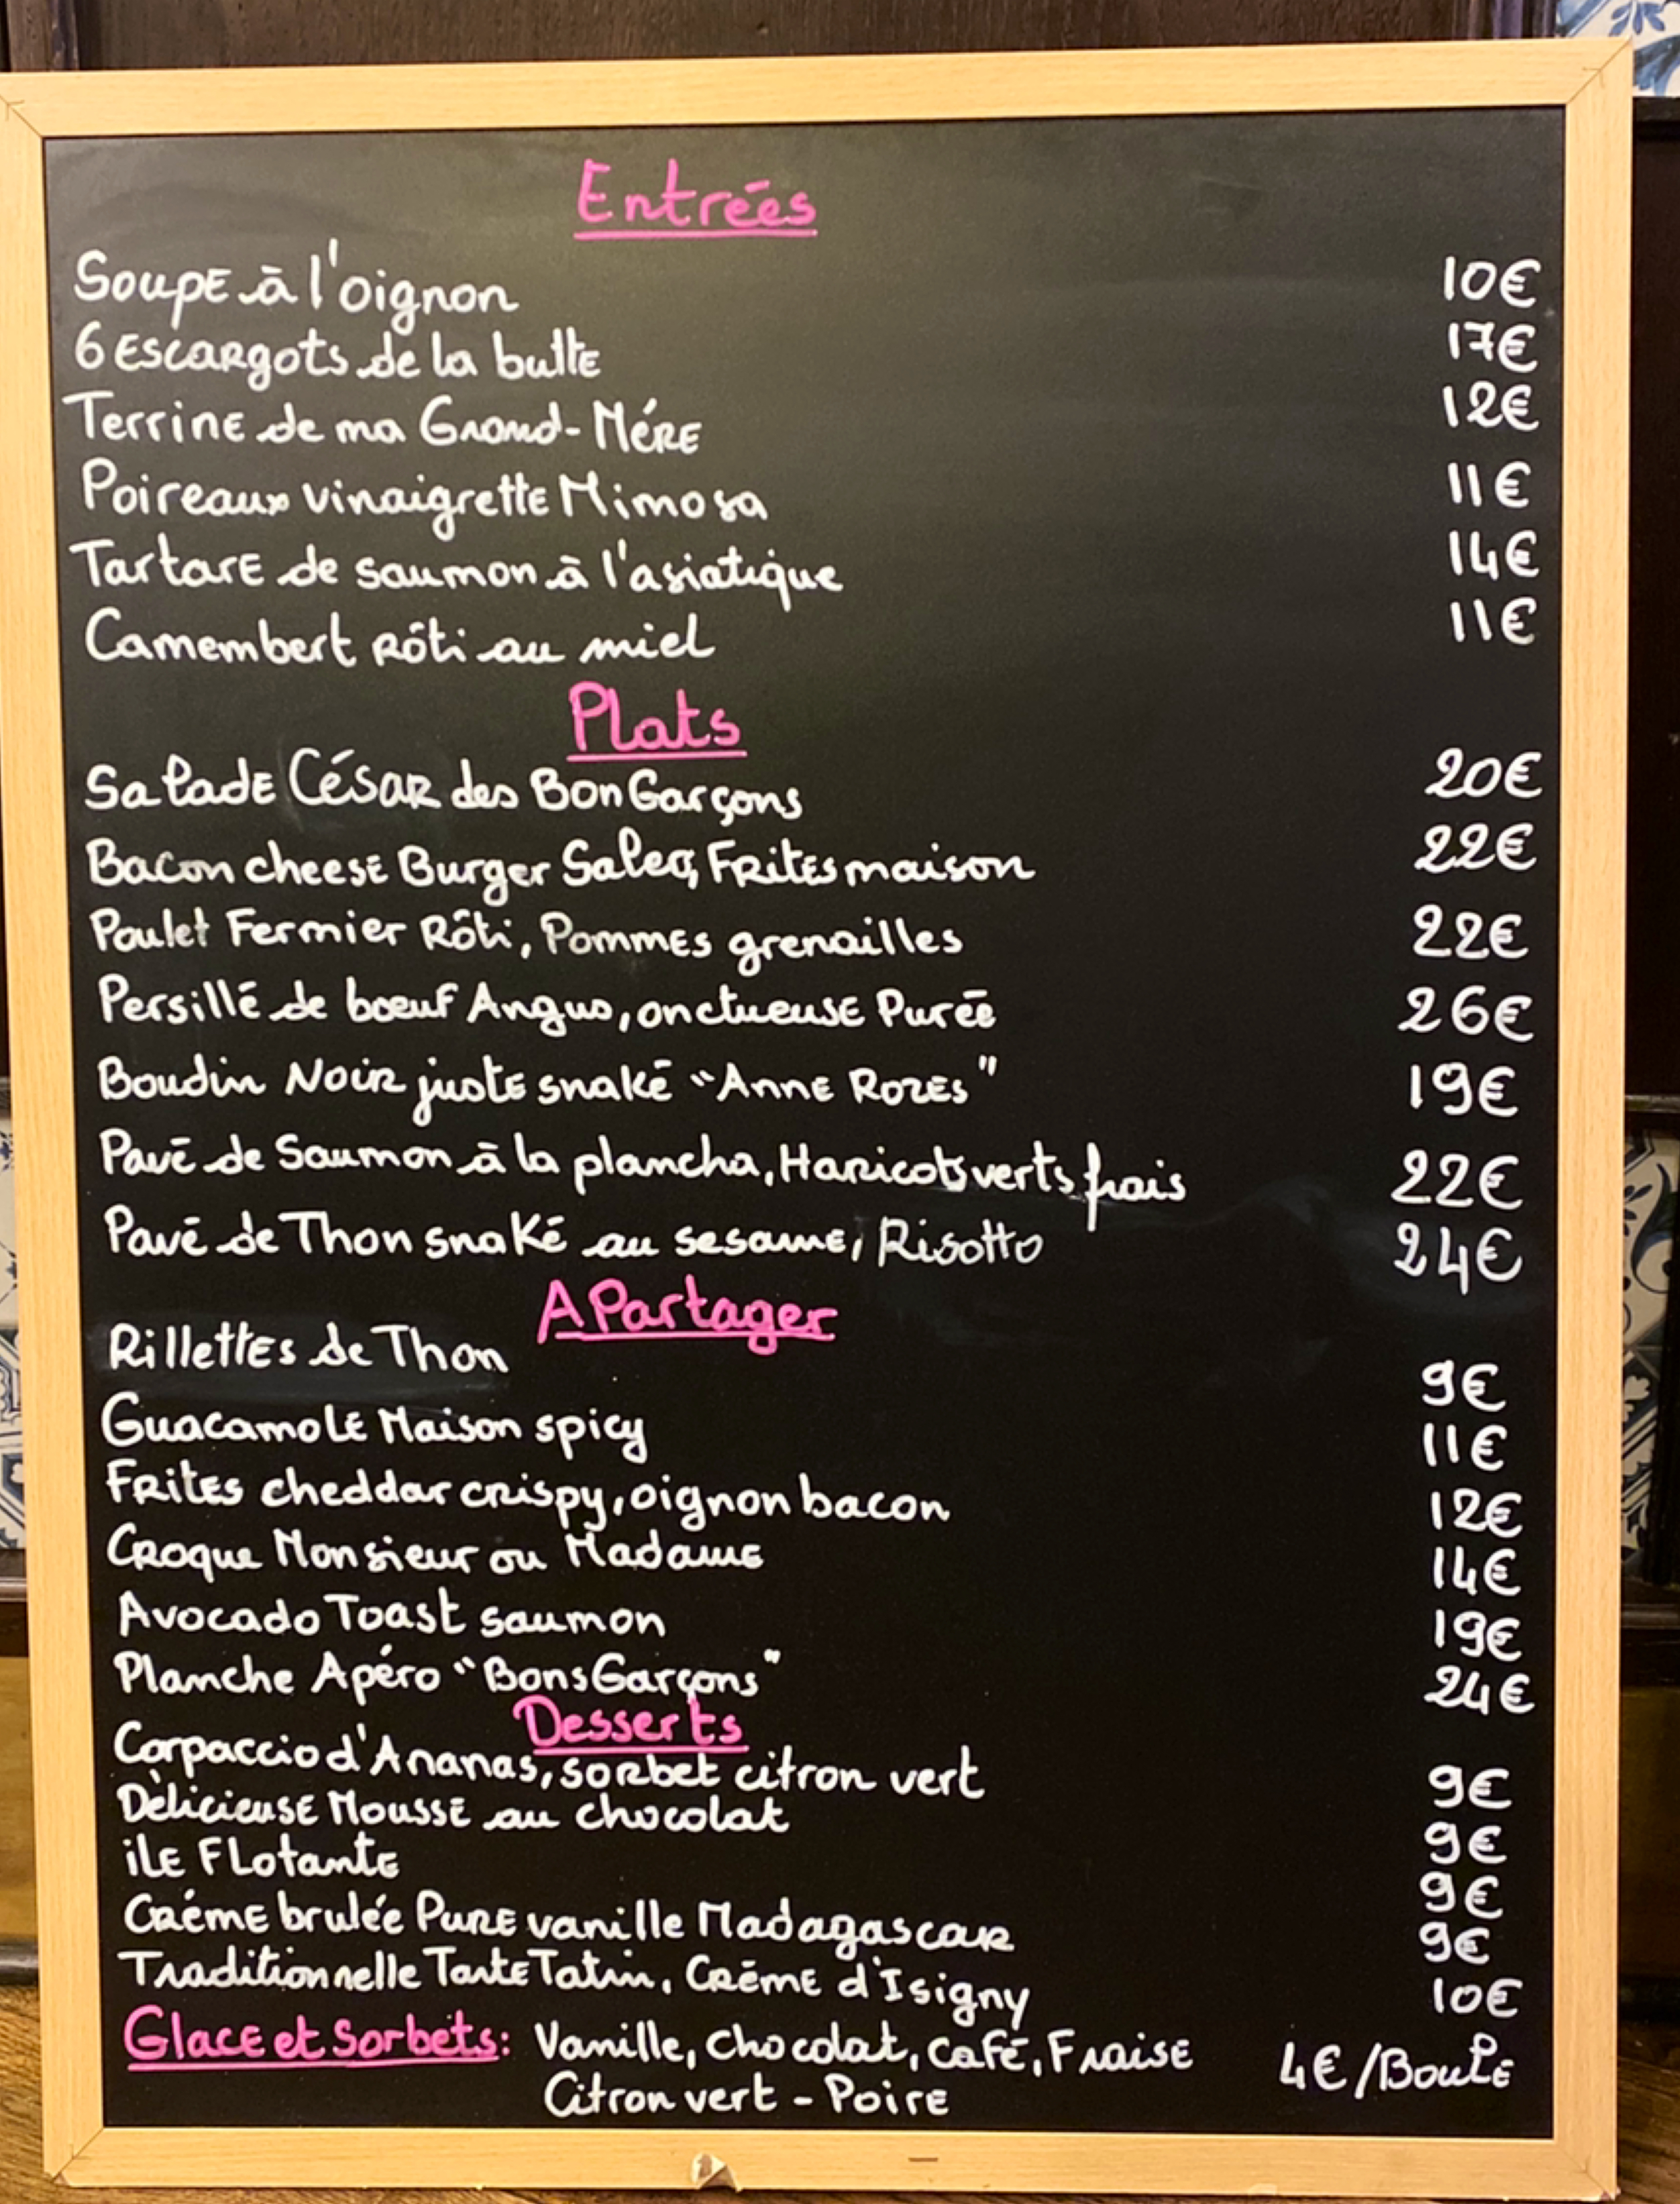 Entrées
Soupe à l'oignon 10€
6 Escargots de la butte 17€
Terrine de ma Grand-Mére 12€
Poireaux vinaigrette Mimosa 11€
Tartare de saumon à l'asiatique 14€
Camembert Rôti au miel 11€
Plats
Salade César des Bon Garçons 20€
Bacon cheese Burger Salers, Frites maison 22€
Poulet Fermier Rôti, Pommes grenailles 22€
Persillé de bœuf Angus, onctueuse Purée 26€
Boudin Noir juste snaké "Anne Rozes" 19€
Pavé de Saumon à la plancha, Haricots verts frais 22€
Pavé de Thon snaké au sesame, Risotto 24€
A Partager
Rillettes de Thon 9€
Guacamole Maison spicy 11€
Frites cheddar crispy, oignon bacon 12€
Croque Monsieur ou Madame 14€
Avocado Toast saumon 19€
Planche Apéro "Bons Garçons" 24€
Desserts
Carpaccio d'Ananas, sorbet citron vert 9€
Délicieuse Mousse au chocolat 9€
ile Flotante 9€
Créme brulée Pure vanille Madagascar 9€
Traditionnelle Tarte Tatin, Crème d'Isigny 10€
Glace et Sorbets: Vanille, chocolat, café, Fraise 4€/Boule
Citron vert - Poire